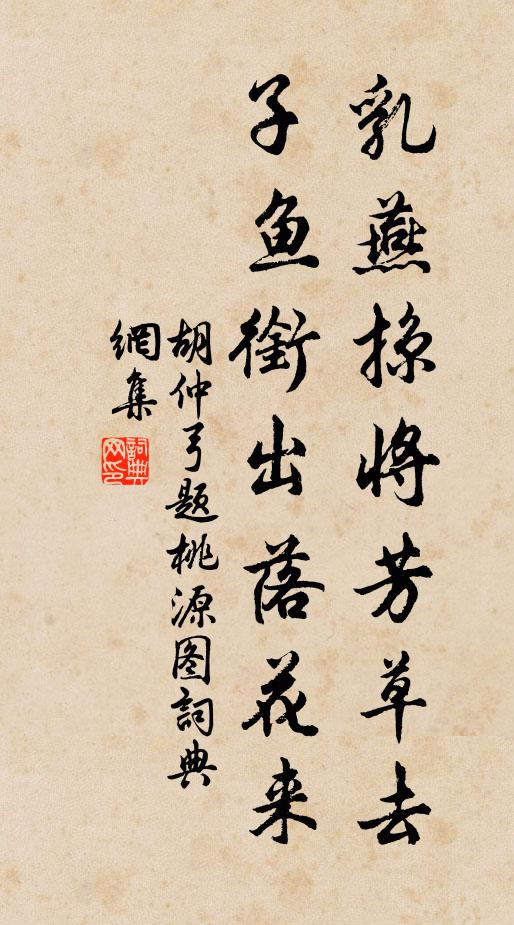 乳燕掠将芳草去
子鱼銜出落花来
胡仲弓题桃源图詞典
網集
詞典网印